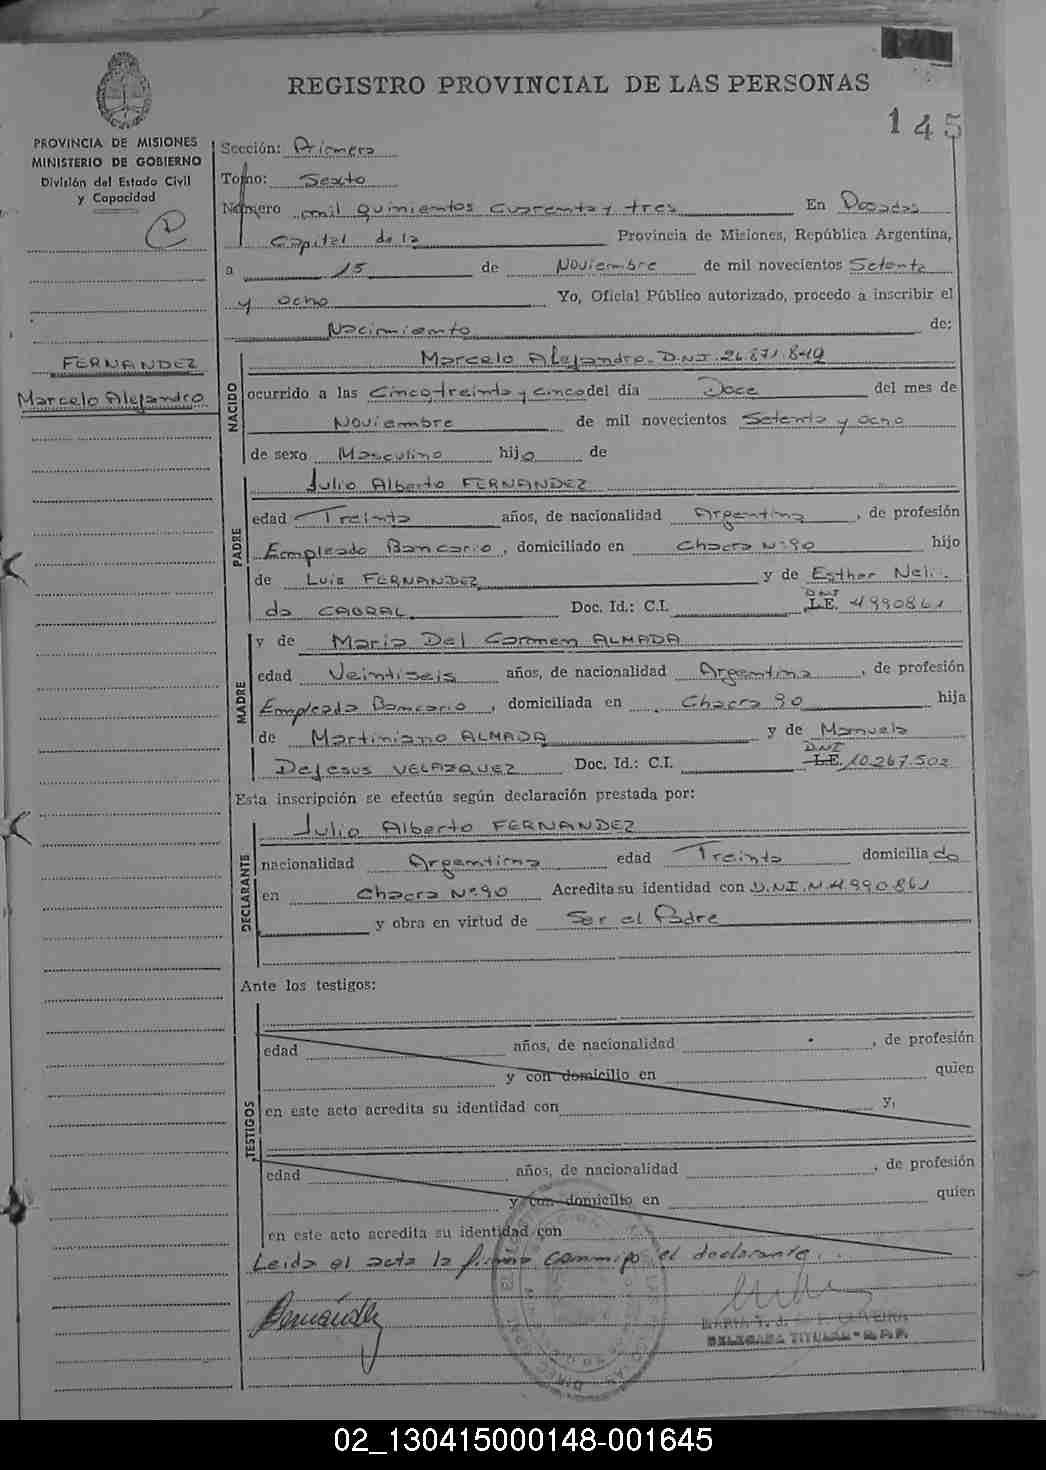 REGISTRO PROVINCIAL DE LAS PERSONAS
145
PROVINCIA DE MISIONES
MINISTERIO DE GOBIERNO
División del Estado Civil
y Capacidad
FERNANDEZ
Marcelo Alejandro
Sección: Primera
Tomo: Sexto
Número mil quinientos cuarenta y tres En Posadas
Capital de la Provincia de Misiones, República Argentina,
a 15 de Noviembre de mil novecientos Setenta
y ocho Yo, Oficial Público autorizado, procedo a inscribir el
Nacimiento de:
NACIDO
Marcelo Alejandro - D.N.I. 26.871.849
ocurrido a las Cinco treinta y cinco del día Doce del mes de
Noviembre de mil novecientos Setenta y ocho
de sexo Masculino hijo de
PADRE
Julio Alberto FERNANDEZ
edad Treinta años, de nacionalidad Argentina, de profesión
Empleado Bancario, domiciliado en Chacra Nº 90 hijo
de Luis FERNANDEZ y de Esther Neli
da CABRAL Doc. Id.: C.I. DNI L.E. 4990861
MADRE
y de Maria Del Carmen ALMADA
edad Veintiseis años, de nacionalidad Argentina, de profesión
Empleada Bancaria, domiciliada en Chacra 90 hija
de Martiniano ALMADA y de Manuela
DeJesus VELAZQUEZ Doc. Id.: C.I. DNI L.E. 10.267.502
Esta inscripción se efectúa según declaración prestada por:
DECLARANTE
Julio Alberto FERNANDEZ
nacionalidad Argentina edad Treinta domiciliado
en Chacra Nº 90 Acredita su identidad con D.N.I. N. 4.990.861
y obra en virtud de Ser el Padre
Ante los testigos:
TESTIGOS
edad años, de nacionalidad , de profesión
y con domicilio en quien
en este acto acredita su identidad con y,
edad años, de nacionalidad , de profesión
y con domicilio en quien
en este acto acredita su identidad con
Leida el acta la firma conmigo el declarante.
Fernández
OLIVEIRA
DELEGADA TITULAR - R.P.P.
02_130415000148-001645